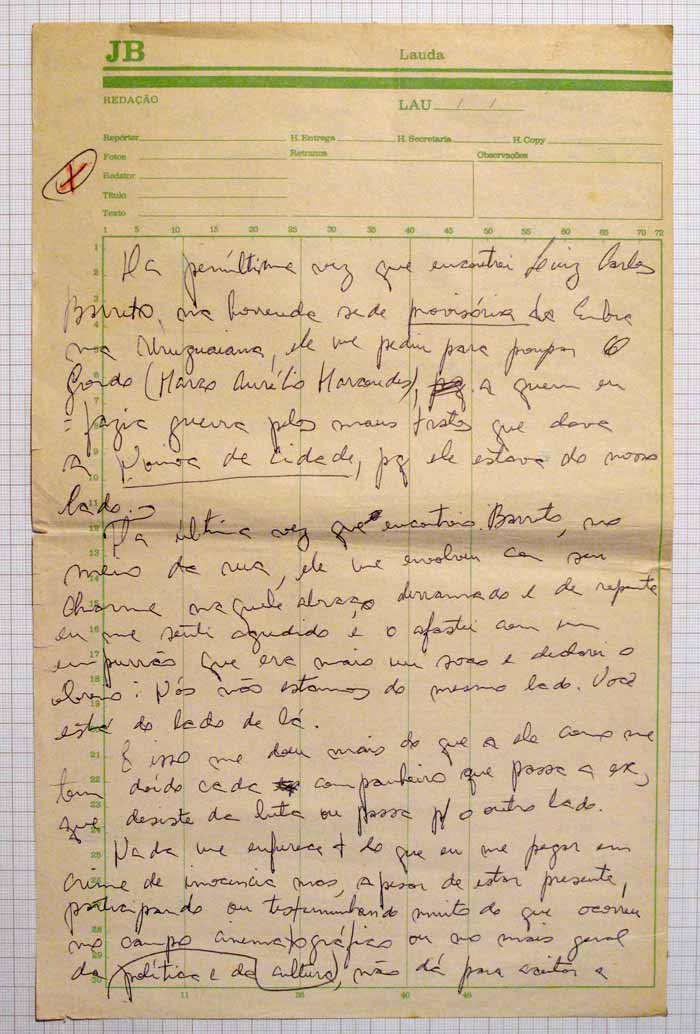 JB Lauda
REDAÇÃO LAU / /
Repórter H. Entrega H. Secretaria H. Copy
Fotos Retranca Observações
Redator
Título
Texto
1 5 11 15 20 25 30 35 40 45 50 55 60 65 70 72
Na penúltima vez que encontrei Luiz Carlos
Barreto, na horrenda sede provisória da Embra
na Uruguaiana, ele me pediu para poupar o
Gordo (Marco Aurélio Marcondes), a quem eu
fazia guerra pelos maus tratos que dava
a Noiva da Cidade, pq ele estava do nosso
lado.
Na última vez que encontrei Barreto, no
meio da rua, ele me envolveu com seu
charme naquele abraço derramado e de repente
eu me senti agredido e o afastei com um
empurrão que era mais um soco e declarei o
óbvio: Nós não estamos do mesmo lado. Você
está do lado de lá.
E isso me doeu mais do que a ele como me
tem doído cada companheiro que passa a ex,
que desiste da luta ou passa p/ o outro lado.
Nada me enfurece + do que eu me pegar em
crime de inocência mas, apesar de estar presente,
participando ou testemunhando muito do que ocorreu
no campo cinematográfico ou no mais geral
da política e da cultura, não dá para aceitar a
11 26 40 48